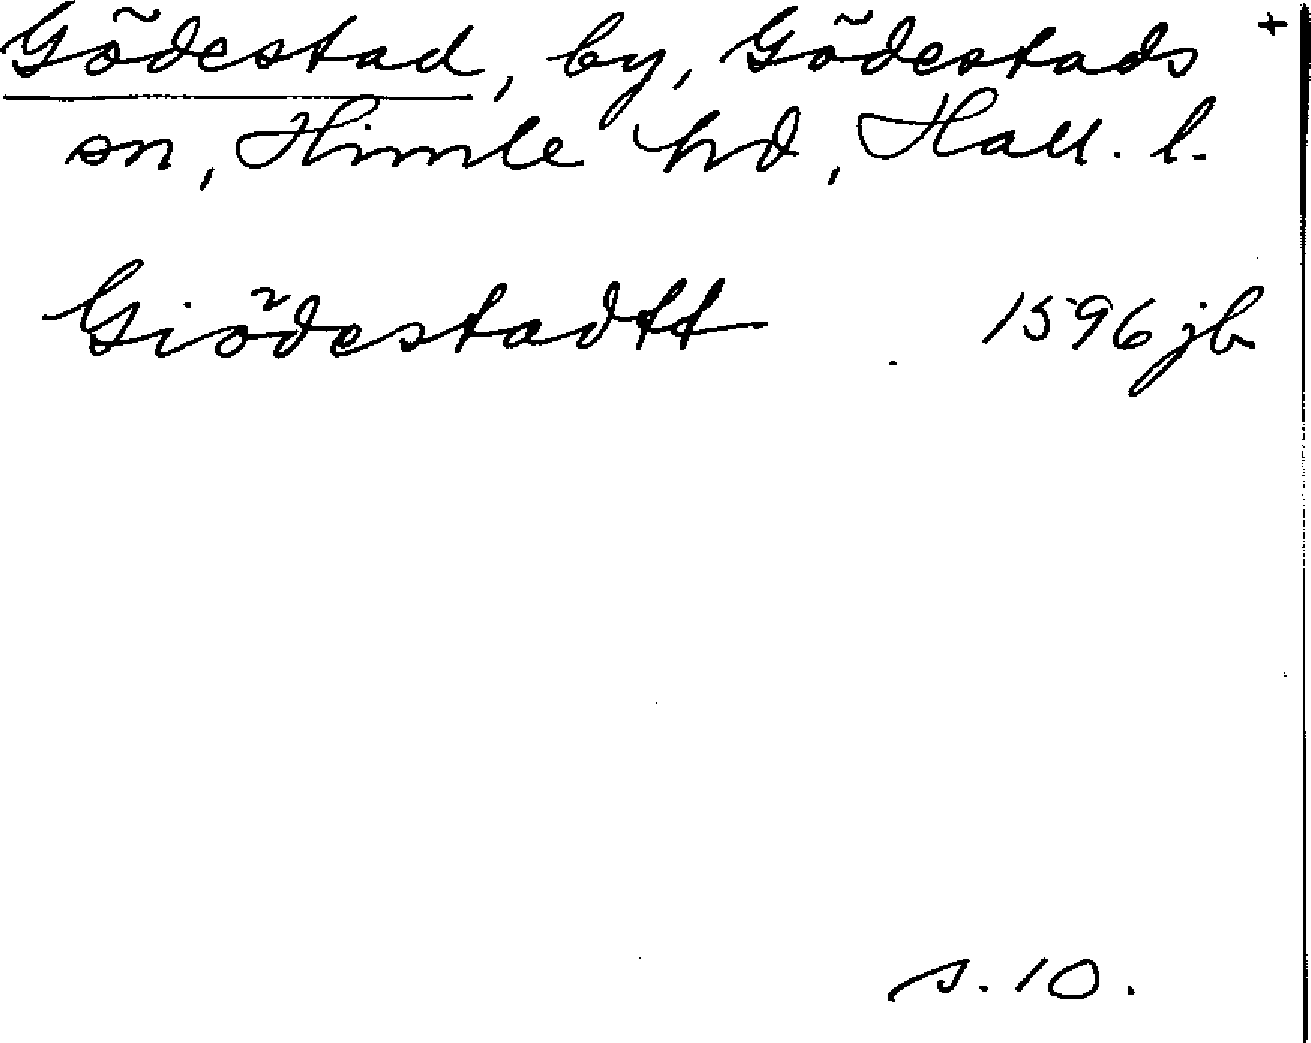 Gödestad, by, Gödestads +
sn, Himle hd, Hall. l.
Giödestadtt 1596 jb
s. 10.